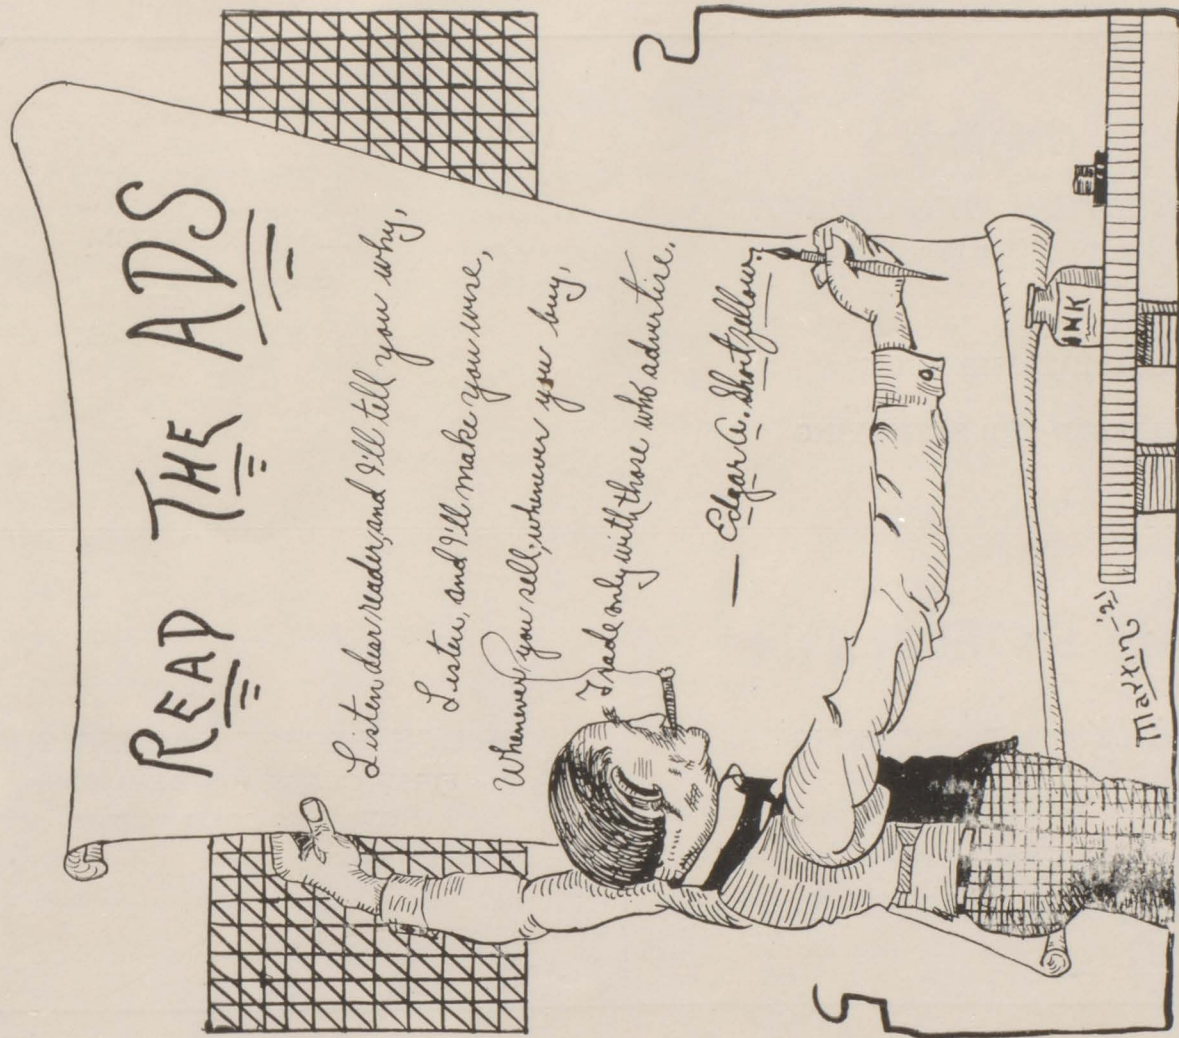 READ THE ADS
Listen dear reader, and I'll tell you why,
Listen, and I'll make you wise,
Whenever you sell, whenever you buy,
Trade only with those who advertise.
— Edgar A. Shortfellow.
INK
Martin '21